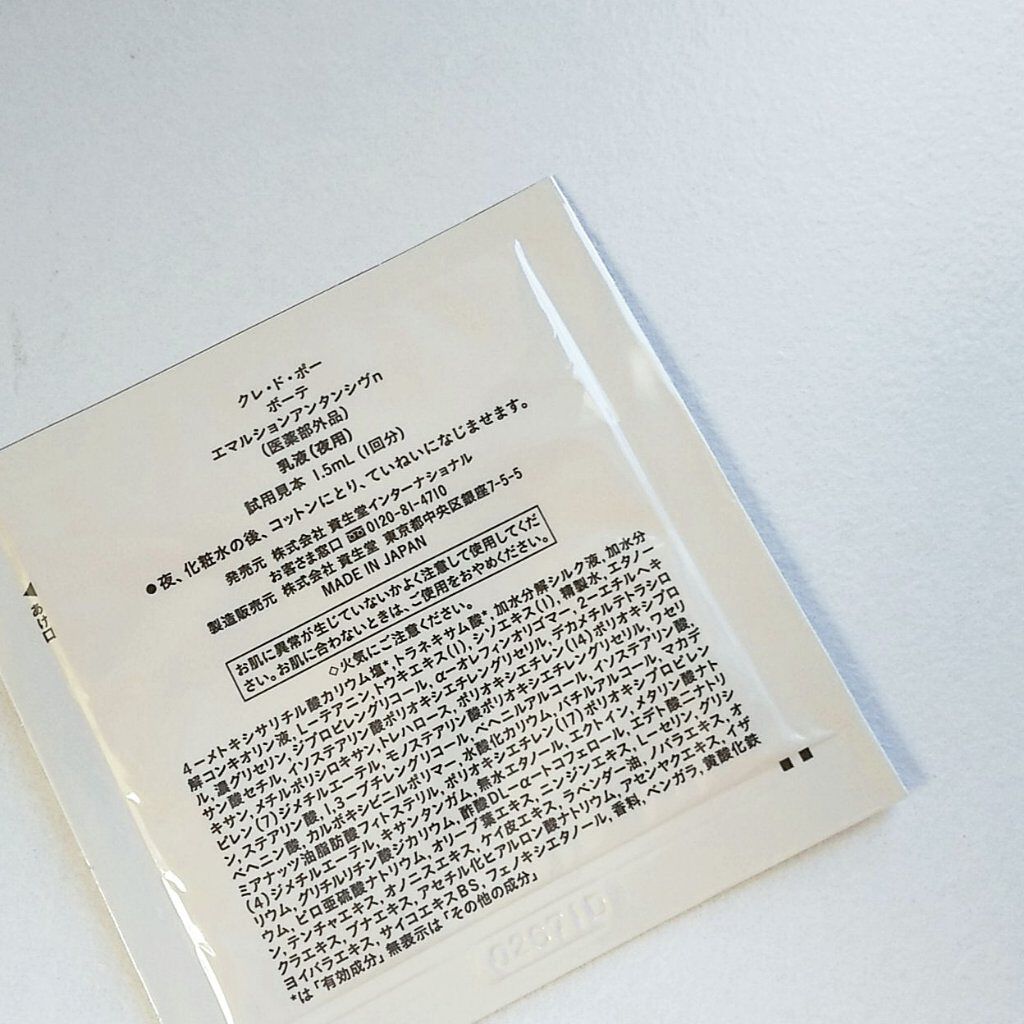 クレ・ド・ポー
ボーテ
エマルションアンタンシヴn
(医薬部外品)
乳液(夜用)
試用見本 1.5mL (1回分)
●夜、化粧水の後、コットンにとり、ていねいになじませます。
発売元 株式会社 資生堂インターナショナル
お客さま窓口 0120-81-4710
製造販売元 株式会社 資生堂 東京都中央区銀座7-5-5
MADE IN JAPAN
お肌に異常が生じていないかよく注意して使用してくだ
さい。お肌に合わないときは、ご使用をおやめください。
◇火気にご注意ください。
4-メトキシサリチル酸カリウム塩*,トラネキサム酸*,加水分解シルク液,加水分
解コンキオリン液,L-テアニン,トウキエキス(1),シソエキス(1),精製水,エタノー
ル,濃グリセリン,ジプロピレングリコール,α-オレフィンオリゴマー,2-エチルヘキ
サン酸セチル,イソステアリン酸ポリオキシエチレングリセリル,デカメチルテトラシロ
キサン,メチルポリシロキサン,トレハロース,ポリオキシエチレン(14)ポリオキシプロ
ピレン(7)ジメチルエーテル,モノステアリン酸ポリオキシエチレングリセリル,ワセリ
ン,ステアリン酸,1,3-ブチレングリコール,ベヘニルアルコール,イソステアリン酸,
ベヘニン酸,カルボキシビニルポリマー,水酸化カリウム,バチルアルコール,マカデ
ミアナッツ油脂肪酸フィトステリル,ポリオキシエチレン(17)ポリオキシプロピレン
(4)ジメチルエーテル,キサンタンガム,無水エタノール,エクトイン,メタリン酸ナト
リウム,グリチルリチン酸ジカリウム,酢酸DL-α-トコフェロール,エデト酸二ナトリ
ウム,ピロ亜硫酸ナトリウム,オリーブ葉エキス,ニンジンエキス,L-セリン,グリシ
ン,テンチャエキス,オノニスエキス,ケイ皮エキス,ラベンダー油,ノバラエキス,オ
クラエキス,ブナエキス,アセチル化ヒアルロン酸ナトリウム,アセンヤクエキス,イザ
ヨイバラエキス,サイコエキスBS,フェノキシエタノール,香料,ベンガラ,黄酸化鉄
*は「有効成分」無表示は「その他の成分」
◀あけ口